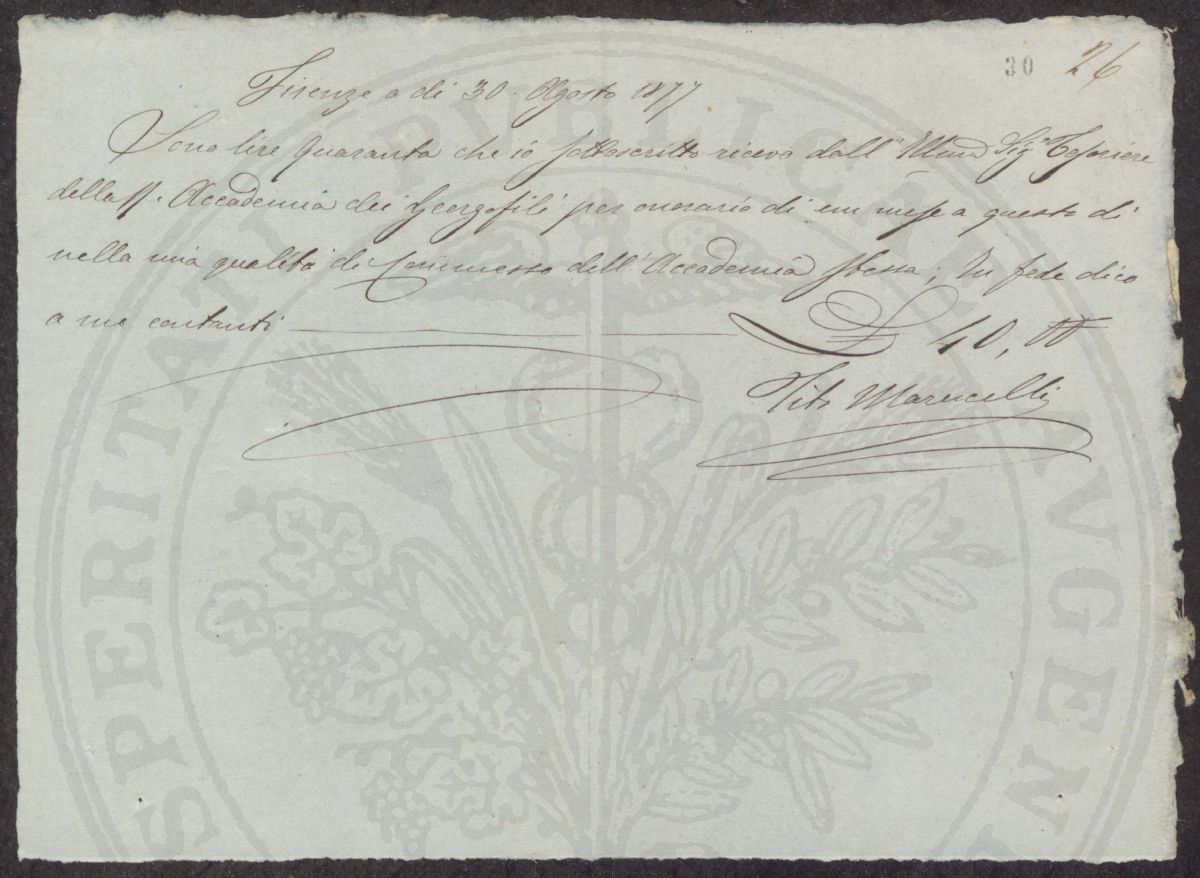 30 26
Firenze a dì 30. Agosto 1877
Sono lire quaranta che io sottoscritto ricevo dall' Illmo Sigr Tesoriere
della R. Accademia dei Georgofili per onorario di un mese a questo dì
nella mia qualità di Commesso dell' Accademia stessa; In fede dico
a me contanti £ 40,00
Tito Marucelli
PROSPERITATI PVBLICAE AVGENDAE